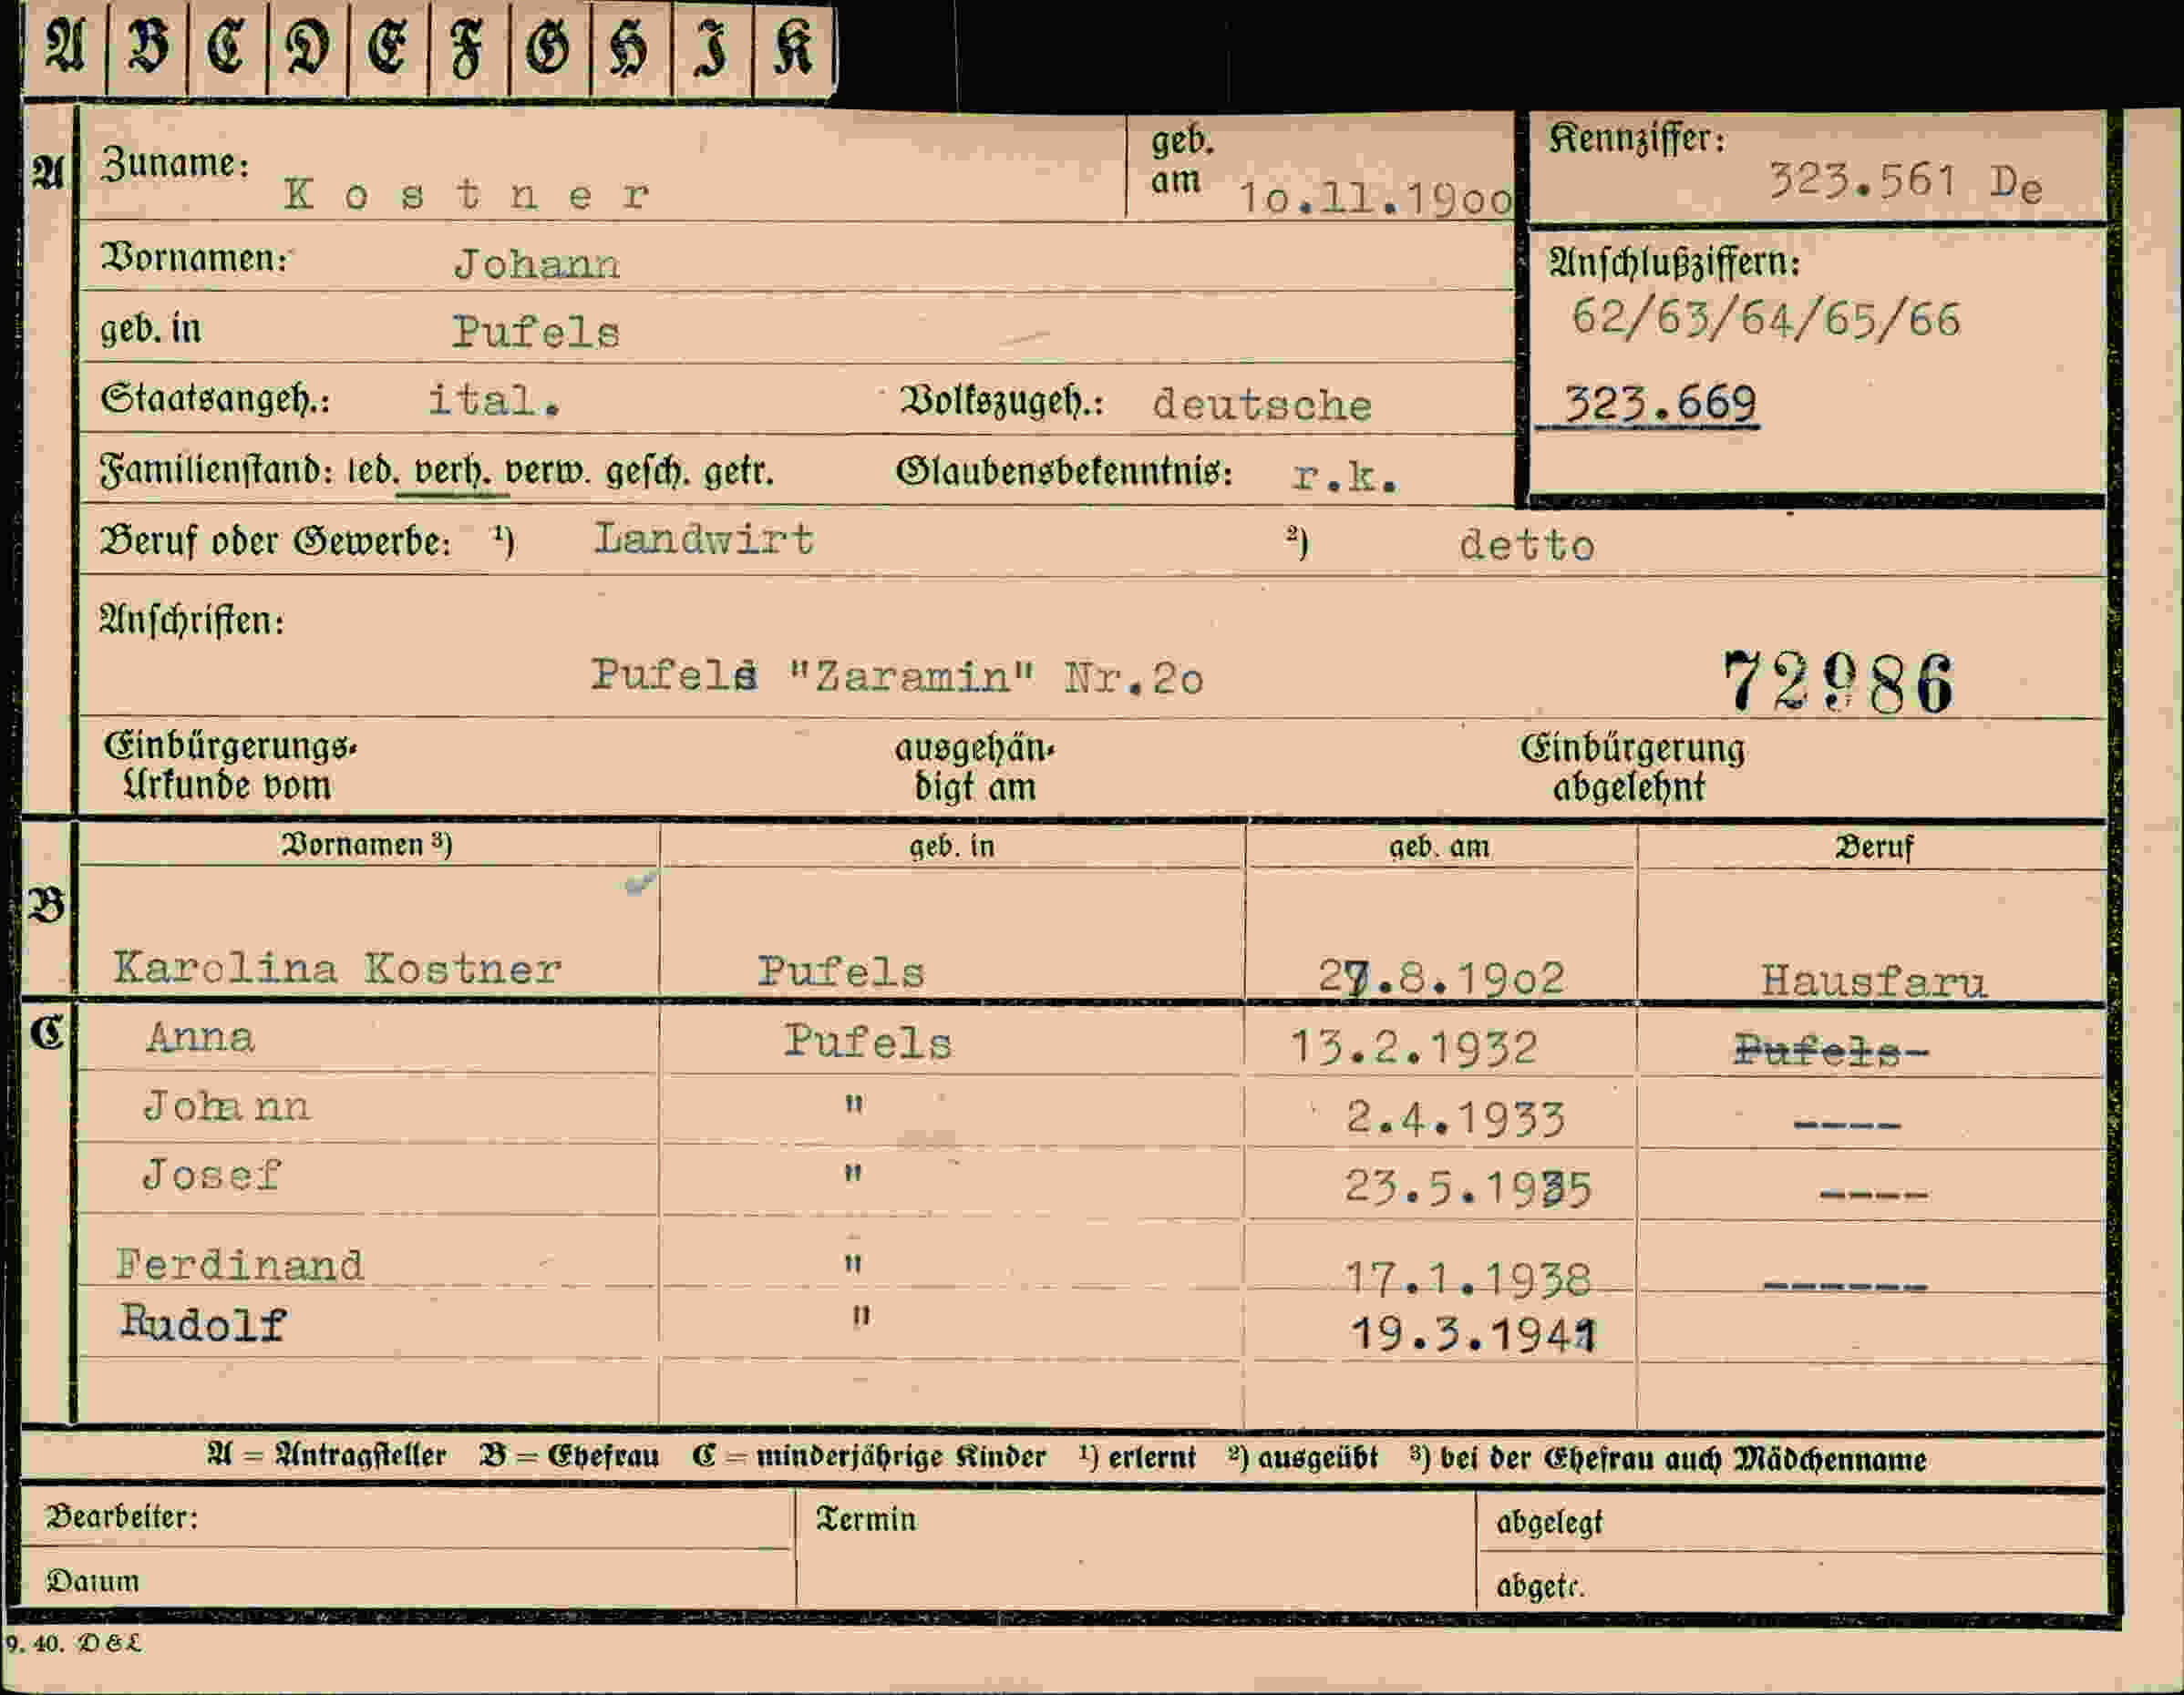 A B C D E F G H I K
A Zuname: Kostner geb. am 10.11.1900 Kennziffer: 323.561 De
Vornamen: Johann Anschlußziffern:
geb. in Pufels 62/63/64/65/66
Staatsangeh.: ital. Volkszugeh.: deutsche 323.669
Familienstand: led. verh. verw. gesch. getr. Glaubensbekenntnis: r.k.
Beruf oder Gewerbe: ¹) Landwirt ²) detto
Anschriften:
Pufels "Zaramin" Nr.20 72986
Einbürgerungs- ausgehän- Einbürgerung
Urkunde vom digt am abgelehnt
Vornamen ³) geb. in geb. am Beruf
B
Karolina Kostner Pufels 27.8.1902 Hausfaru
C Anna Pufels 13.2.1932 Pufels-
Johann " 2.4.1933 ----
Josef " 23.5.1935 ----
Ferdinand " 17.1.1938 ------
Rudolf " 19.3.1941
A = Antragsteller B = Ehefrau C = minderjährige Kinder ¹) erlernt ²) ausgeübt ³) bei der Ehefrau auch Mädchenname
Bearbeiter: Termin abgelegt
Datum abgetr.
9. 40. D & L